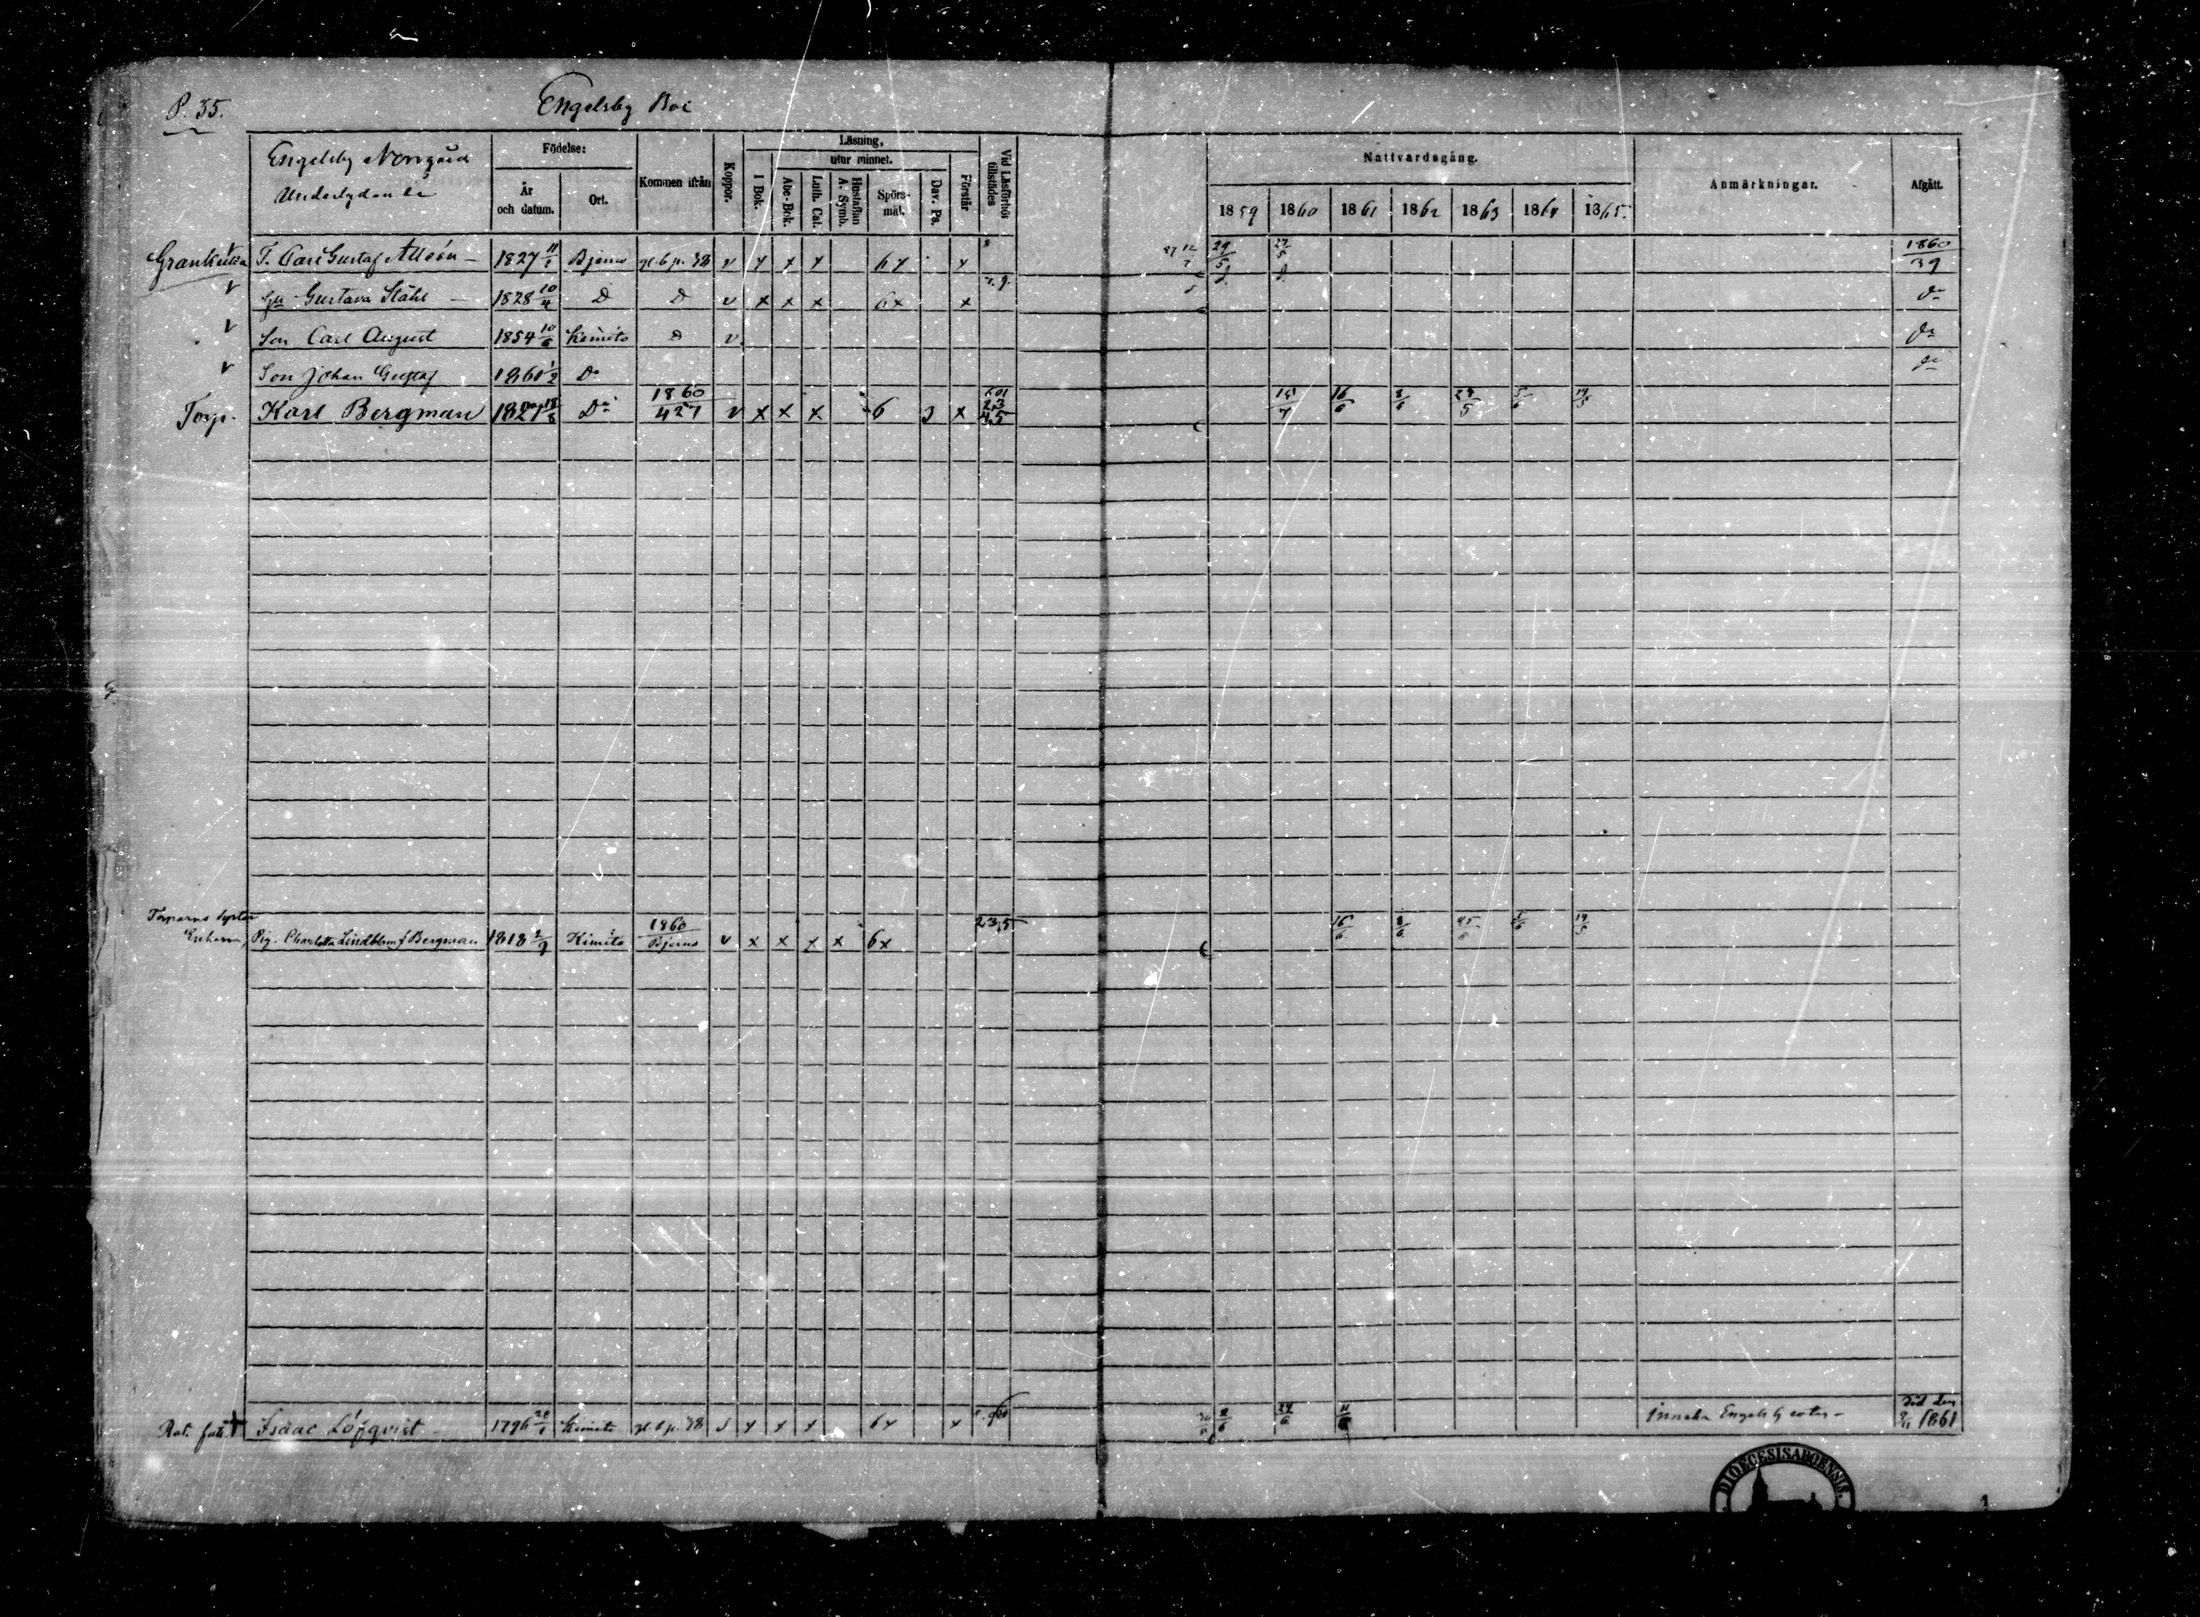 P. 35.
Engelsby Boe
Engelsby Norrgård
Underlydande
Födelse:
År och datum.
Ort.
Kommen ifrån
Koppor.
Läsning,
utur minnet.
I Bok.
Abc-Bok.
Luth. Cat.
Hustaflan A. Symb.
Spörs-mål.
Dav. Ps.
Förstår
Vid Läsförhör tillstädes
Nattvardsgång.
1859 1860 1861 1862 1863 1864 1865.
Anmärkningar.
Afgått.
T. Carl Gustaf 1827 11/1 Bjerno gl. b. p. 38 v x x x 6x x 29/5 27/5 1860/39
Gustava Ståhl 1828 10/4 D D v x x x 6x x Do
Son Carl August 1854 10/6 Kimito D v Do
Son Johan Gustaf 1860 1/2 Do Do
Torp. Karl Bergman 1821 18/8 Do 1860/427 v x x x 6 3 x 15/7 16/6 8/6 5/6 19/5
Torparns syster
Pig. Charlotta Lindblom f Bergman 1818 2/9 Kimito 1860/Bjerno v x x x x 6x 235 16/6 8/6 5/6 19/5
Isaac Löfqvist 1796 28/1 Kimito gl. b. p. 38 x x x 6x x 8/6 24/6 11/6 Engelsby Död den 9/11 1861
DIOECESIS ABOENSIS.
1